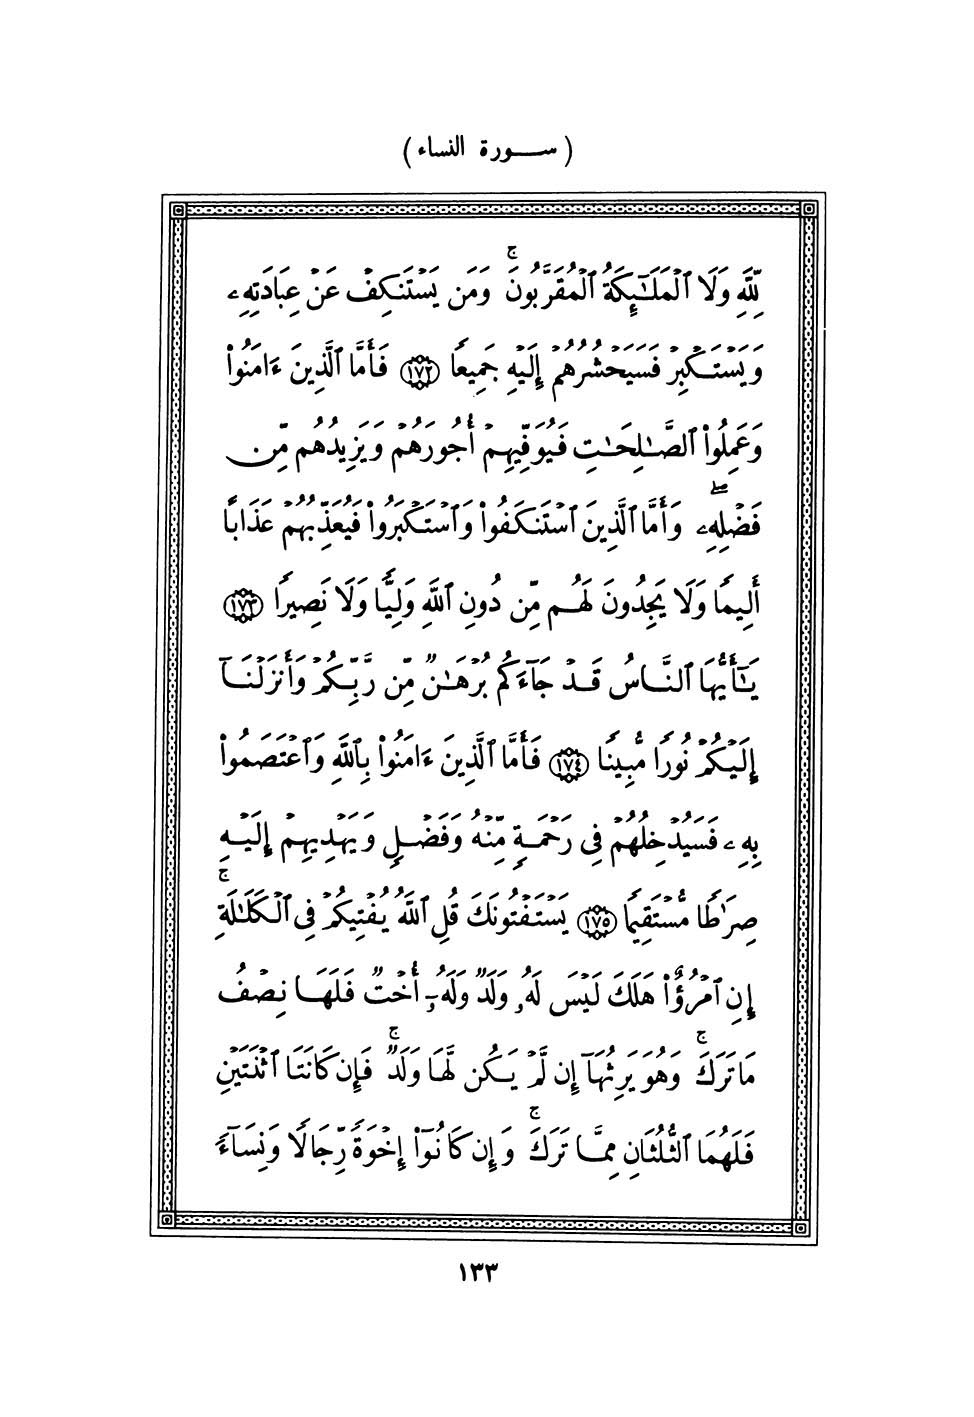 ( سورة النساء )
لِّلَّهِ وَلَا ٱلْمَلَٰٓئِكَةُ ٱلْمُقَرَّبُونَ ۚ وَمَن يَسْتَنكِفْ عَنْ عِبَادَتِهِۦ
وَيَسْتَكْبِرْ فَسَيَحْشُرُهُمْ إِلَيْهِ جَمِيعًا ١٧٢ فَأَمَّا ٱلَّذِينَ ءَامَنُوا۟
وَعَمِلُوا۟ ٱلصَّٰلِحَٰتِ فَيُوَفِّيهِمْ أُجُورَهُمْ وَيَزِيدُهُم مِّن
فَضْلِهِۦ ۖ وَأَمَّا ٱلَّذِينَ ٱسْتَنكَفُوا۟ وَٱسْتَكْبَرُوا۟ فَيُعَذِّبُهُمْ عَذَابًا
أَلِيمًا وَلَا يَجِدُونَ لَهُم مِّن دُونِ ٱللَّهِ وَلِيًّا وَلَا نَصِيرًا ١٧٣
يَٰٓأَيُّهَا ٱلنَّاسُ قَدْ جَآءَكُم بُرْهَٰنٌ مِّن رَّبِّكُمْ وَأَنزَلْنَآ
إِلَيْكُمْ نُورًا مُّبِينًا ١٧٤ فَأَمَّا ٱلَّذِينَ ءَامَنُوا۟ بِٱللَّهِ وَٱعْتَصَمُوا۟
بِهِۦ فَسَيُدْخِلُهُمْ فِى رَحْمَةٍ مِّنْهُ وَفَضْلٍ وَيَهْدِيهِمْ إِلَيْهِ
صِرَٰطًا مُّسْتَقِيمًا ١٧٥ يَسْتَفْتُونَكَ قُلِ ٱللَّهُ يُفْتِيكُمْ فِى ٱلْكَلَٰلَةِ ۚ
إِنِ ٱمْرُؤٌا۟ هَلَكَ لَيْسَ لَهُۥ وَلَدٌ وَلَهُۥٓ أُخْتٌ فَلَهَا نِصْفُ
مَا تَرَكَ ۚ وَهُوَ يَرِثُهَآ إِن لَّمْ يَكُن لَّهَا وَلَدٌ ۚ فَإِن كَانَتَا ٱثْنَتَيْنِ
فَلَهُمَا ٱلثُّلُثَانِ مِمَّا تَرَكَ ۚ وَإِن كَانُوٓا۟ إِخْوَةً رِّجَالًا وَنِسَآءً
١٣٣